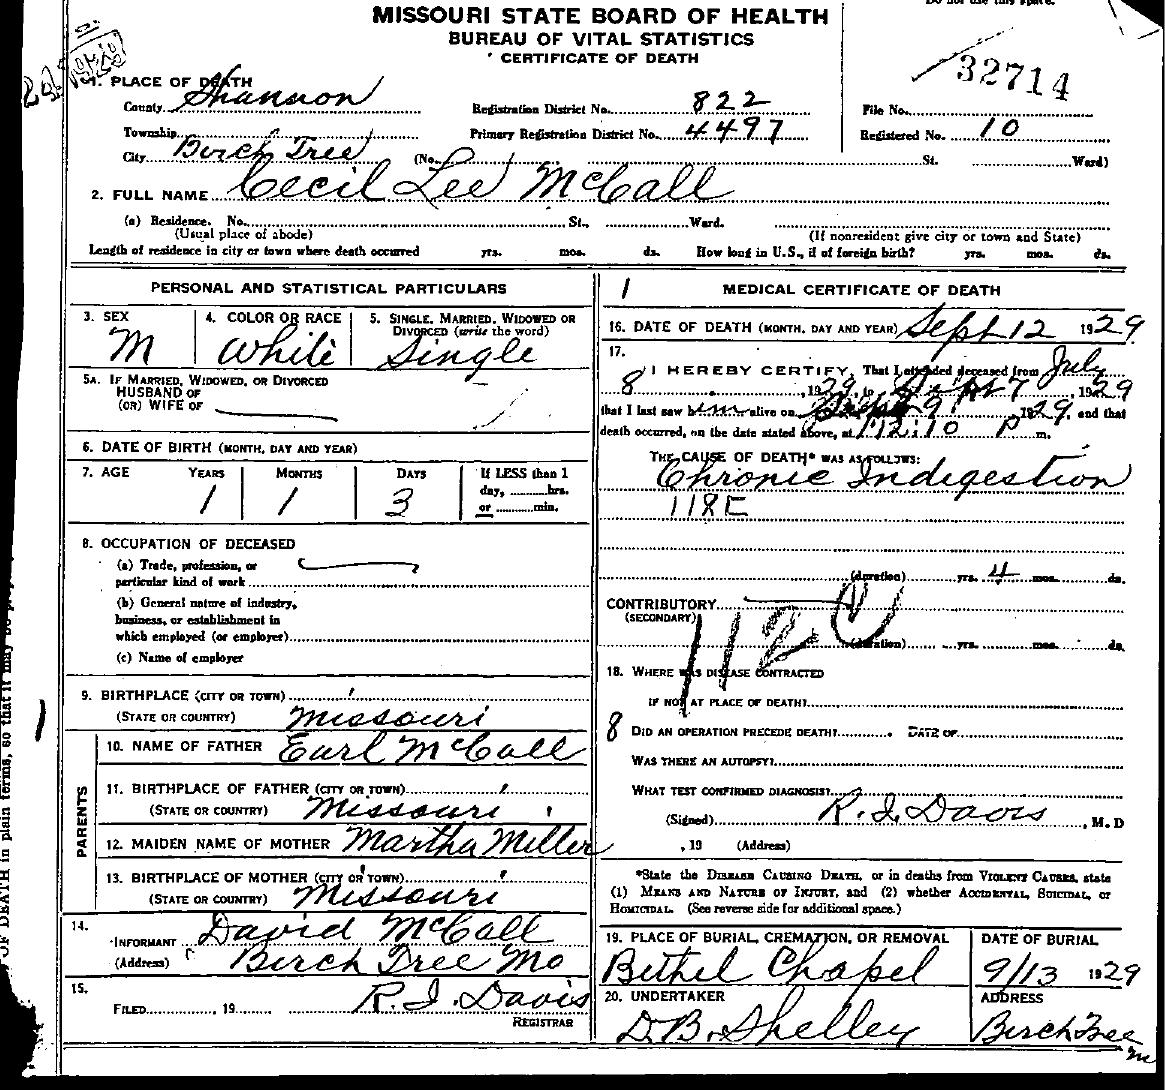 MISSOURI STATE BOARD OF HEALTH
BUREAU OF VITAL STATISTICS
CERTIFICATE OF DEATH
32714
1. PLACE OF DEATH
County Shannon Registration District No. 822 File No.
Township Primary Registration District No. 4497 Registered No. 10
City Birch Tree (No. St. Ward)
2. FULL NAME Cecil Lee McCall
(a) Residence. No. St., Ward.
(Usual place of abode) (If nonresident give city or town and State)
Length of residence in city or town where death occurred yrs. mos. ds. How long in U.S., if of foreign birth? yrs. mos. ds.
PERSONAL AND STATISTICAL PARTICULARS
3. SEX 4. COLOR OR RACE 5. SINGLE, MARRIED, WIDOWED OR
DIVORCED (write the word)
M White Single
5A. IF MARRIED, WIDOWED, OR DIVORCED
HUSBAND OF
(OR) WIFE OF
6. DATE OF BIRTH (MONTH, DAY AND YEAR)
7. AGE YEARS MONTHS DAYS If LESS than 1
day, hrs.
or min.
1 1 3
8. OCCUPATION OF DECEASED
(a) Trade, profession, or
particular kind of work
(b) General nature of industry,
business, or establishment in
which employed (or employer)
(c) Name of employer
9. BIRTHPLACE (CITY OR TOWN)
(STATE OR COUNTRY) Missouri
PARENTS
10. NAME OF FATHER Earl McCall
11. BIRTHPLACE OF FATHER (CITY OR TOWN)
(STATE OR COUNTRY) Missouri
12. MAIDEN NAME OF MOTHER Martha Miller
13. BIRTHPLACE OF MOTHER (CITY OR TOWN)
(STATE OR COUNTRY) Missouri
14.
INFORMANT David McCall
(Address) Birch Tree Mo
15.
FILED , 19 R. I. Davis
REGISTRAR
1 MEDICAL CERTIFICATE OF DEATH
16. DATE OF DEATH (MONTH, DAY AND YEAR) Sept 12 1929
17.
I HEREBY CERTIFY, That I attended deceased from July
8, 1929, to Sept 7, 1929
that I last saw him alive on 1929, and that
death occurred, on the date stated above, at 12:10 P m.
THE CAUSE OF DEATH* WAS AS FOLLOWS:
Chronic Indigestion
118E
(duration) yrs. 4 mos. ds.
CONTRIBUTORY
(SECONDARY)
112
(duration) yrs. mos. ds.
18. WHERE WAS DISEASE CONTRACTED
IF NOT AT PLACE OF DEATH?
8 DID AN OPERATION PRECEDE DEATH? DATE OF
WAS THERE AN AUTOPSY?
WHAT TEST CONFIRMED DIAGNOSIS?
(Signed) R. I. Davis, M. D
, 19 (Address)
*State the DISEASE CAUSING DEATH, or in deaths from VIOLENT CAUSES, state
(1) MEANS AND NATURE OF INJURY, and (2) whether ACCIDENTAL, SUICIDAL, or
HOMICIDAL. (See reverse side for additional space.)
19. PLACE OF BURIAL, CREMATION, OR REMOVAL DATE OF BURIAL
Bethel Chapel 9/13 1929
20. UNDERTAKER ADDRESS
D. B. Shelley Birch Tree